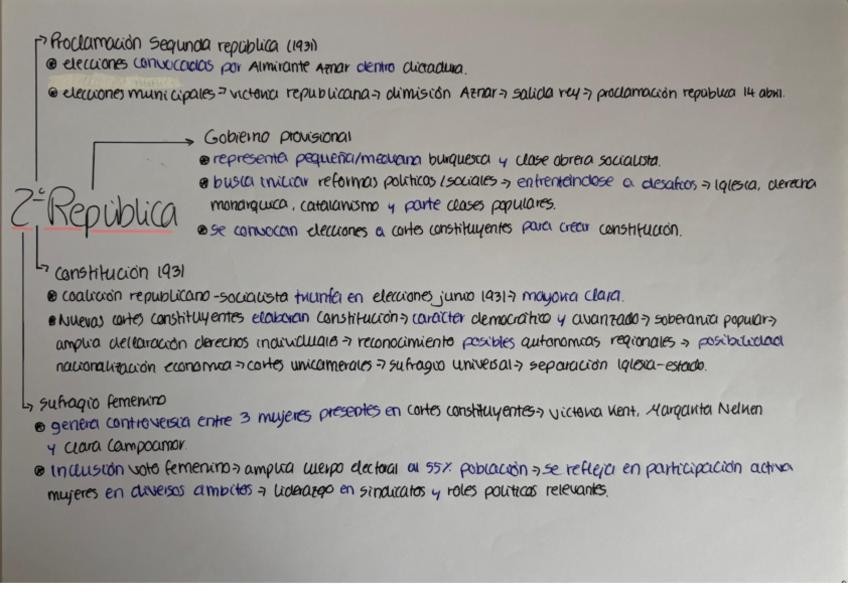 Proclamación Segunda república (1931)
elecciones convocadas por Almirante Aznar dentro dictadura.
elecciones municipales → victoria republicana → dimisión Aznar → salida rey → proclamación república 14 abril.
Gobierno provisional
representa pequeña/mediana burguesía y clase obrera socialista.
busca iniciar reformas políticas/sociales → enfrentándose a desafíos → Iglesia, derecha
monárquica, catalanismo y parte clases populares.
2ª República
se convocan elecciones a cortes constituyentes para crear constitución.
Constitución 1931
coalición republicano-socialista triunfa en elecciones junio 1931 → mayoría clara.
Nuevas cortes constituyentes elaboran Constitución → carácter democrático y avanzado → soberanía popular →
amplia declaración derechos individuales → reconocimiento posibles autonomías regionales → posibilidad
nacionalización economía → cortes unicamerales → sufragio universal → separación Iglesia-estado.
Sufragio femenino
genera controversia entre 3 mujeres presentes en cortes constituyentes → Victoria Kent, Margarita Nelken
y Clara Campoamor.
Inclusión voto femenino → amplia cuerpo electoral al 55% población → se refleja en participación activa
mujeres en diversos ámbitos → liderazgo en sindicatos y roles políticos relevantes.